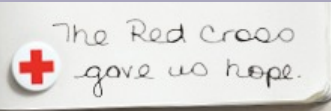 The Red Cross
gave us hope.